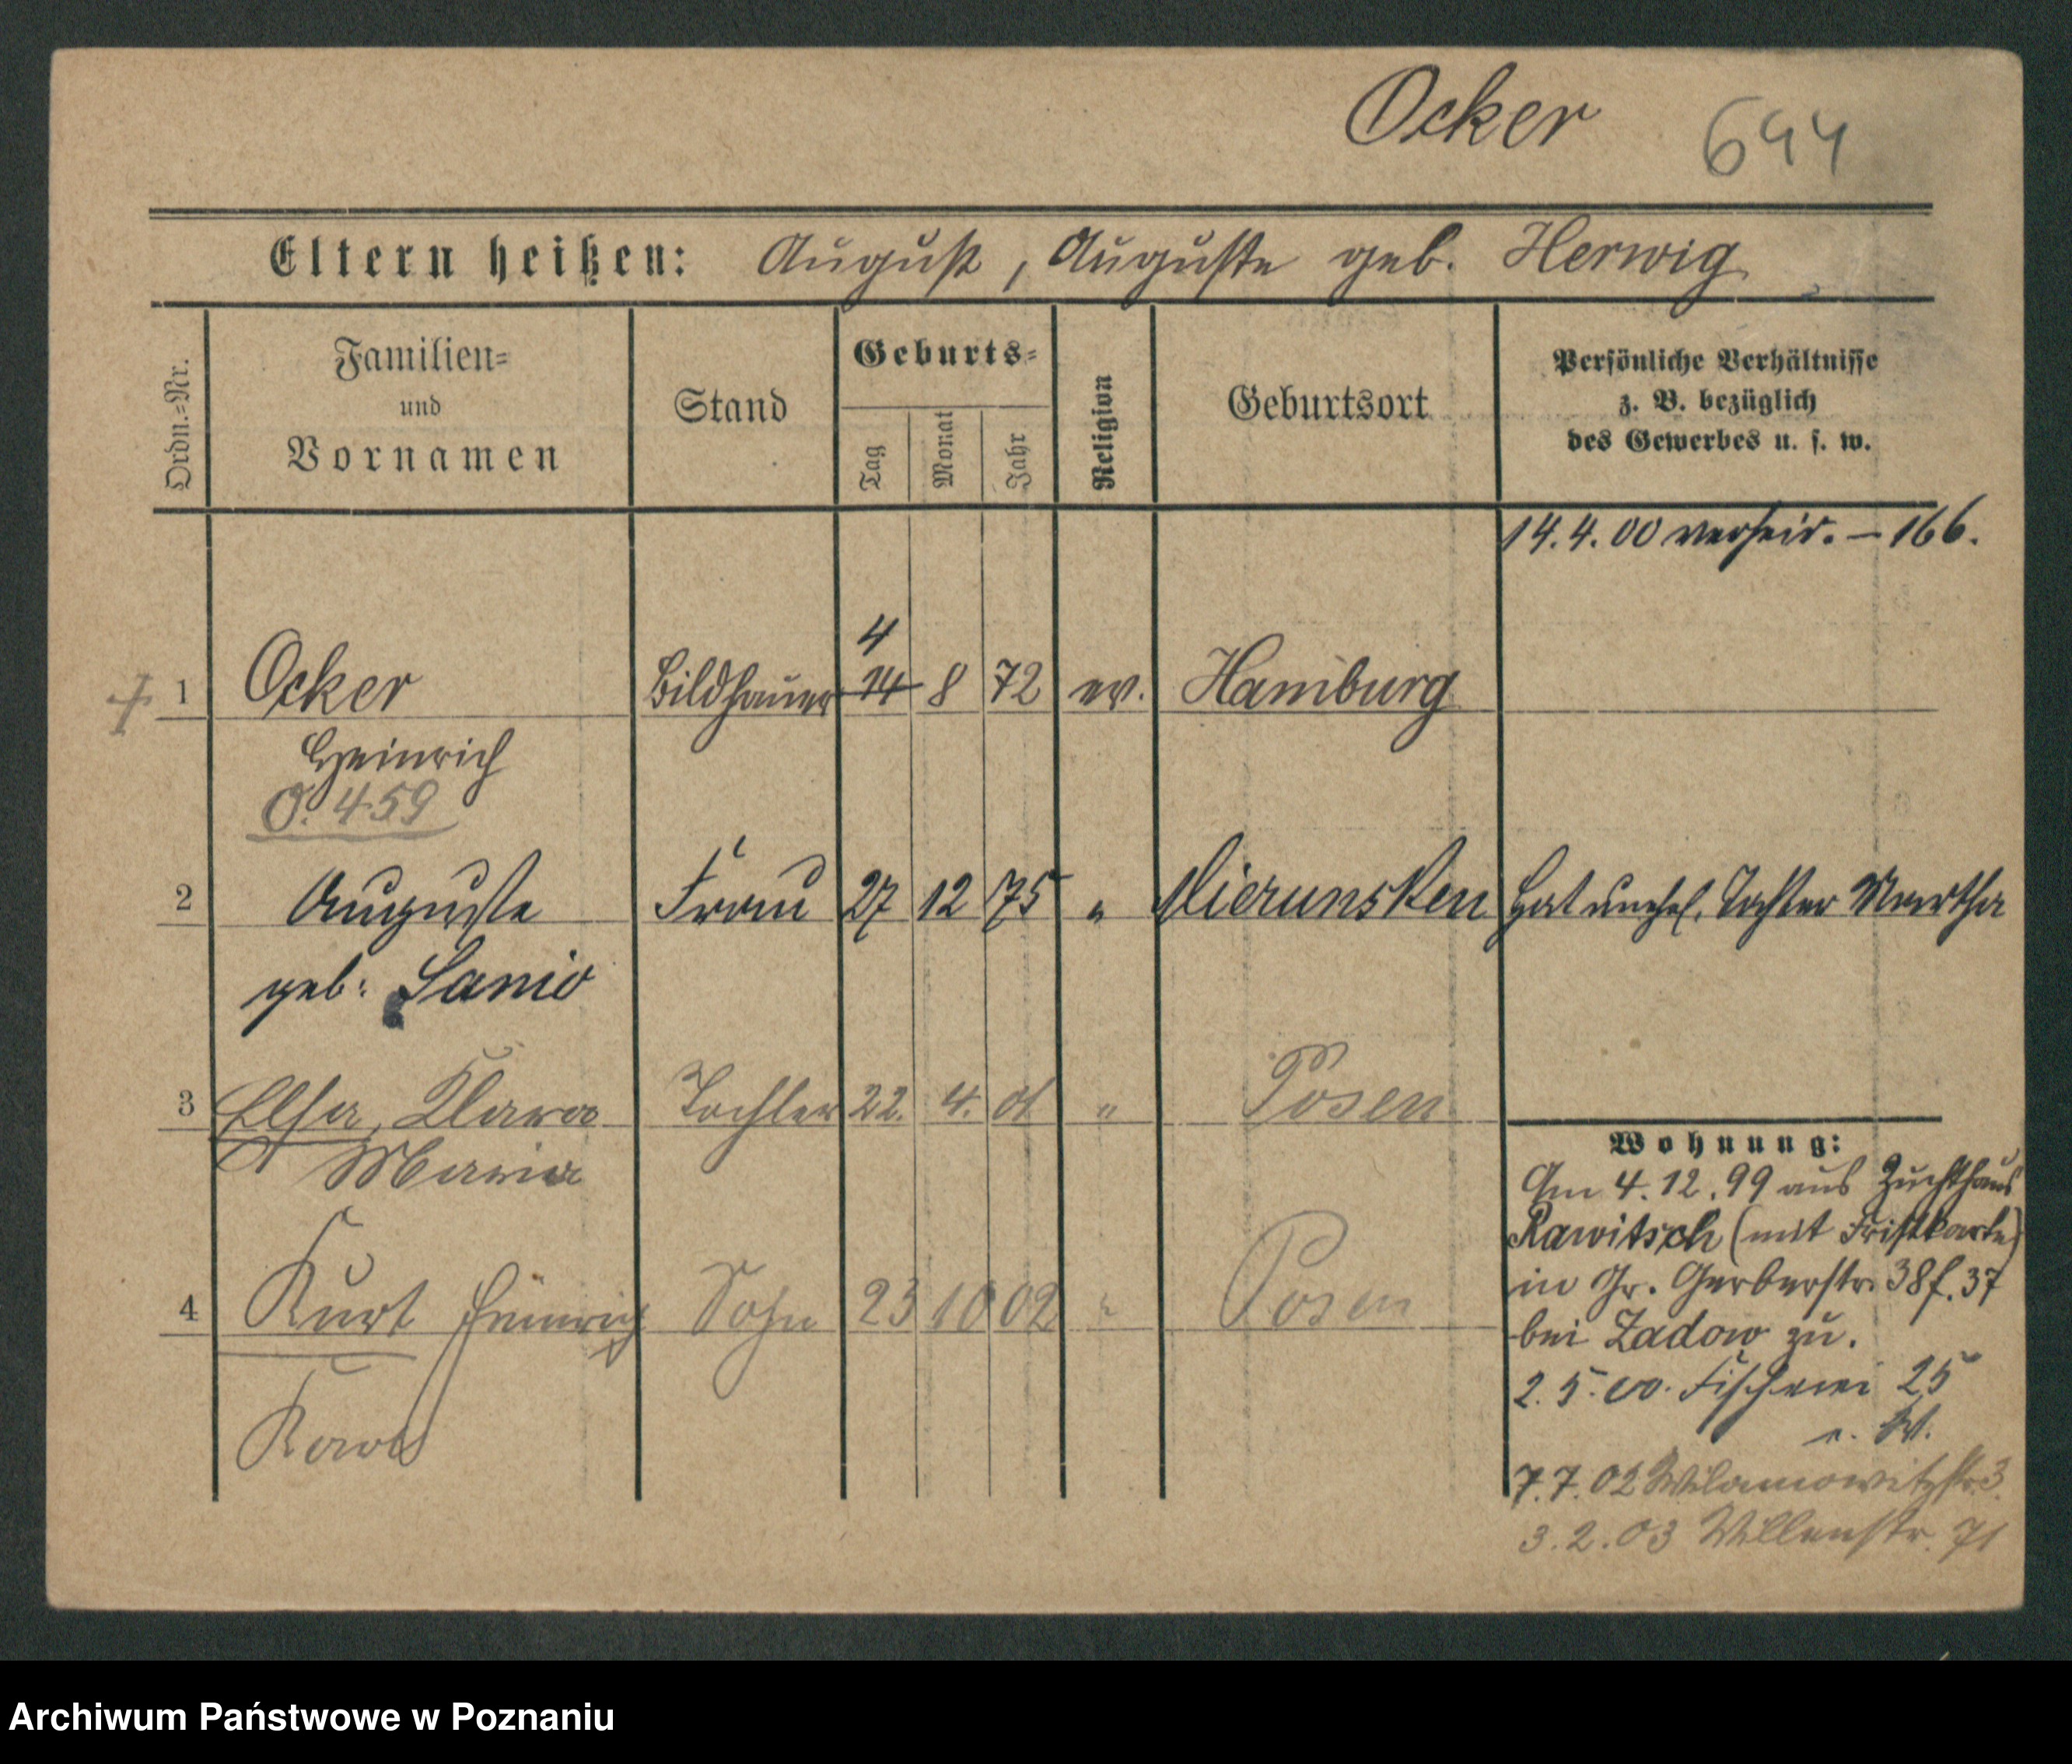 Ocker 644
Eltern heißen: August, Auguste geb. Herwig
Ordn.-Nr.
Familien-
und
Vornamen
Stand
Geburts-
Tag
Monat
Jahr
Religion
Geburtsort
Persönliche Verhältnisse
z. B. bezüglich
des Gewerbes u. s. w.
14.4.00 verheir. – 166.
4
1 Ocker Bildhauer 14 8 72 ev. Hamburg
Heinrich
O. 459
2 Auguste Frau 27 12 75 " Mierunsken Hat unehel. Tochter Martha
geb: Sanio
3 Elsa, Klara Tochter 22. 4. 01 " Posen
Maria
Wohnung:
Am 4.12.99 aus Zuchthaus
Rawitsch (mit Fristkarte)
in Gr. Gerberstr. 38 f. 37
bei Zadow zu.
4 Kurt Heinrich Sohn 23 10 02 " Posen
Karl
2.5.00. Fischerei 25
7.7.02 Wilamowitzstr. 3.
3.2.03 Villenstr. 71
Archiwum Państwowe w Poznaniu